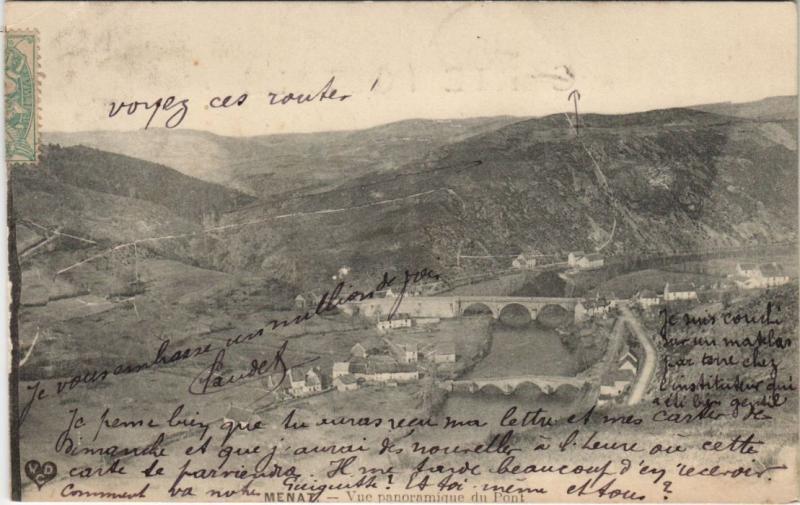 voyez ces routes !
Je vous embrasse un million de fois
Je suis couché
sur un matelas
par terre chez
l'instituteur qui
a été bien gentil
Je pense bien que tu auras reçu ma lettre et mes cartes de
dimanche et que j'aurai des nouvelles à l'heure où cette
carte te parviendra. Il me tarde beaucoup d'en recevoir.
Comment va notre Guiguitte ? Et toi-même et tous ?
MENAT — Vue panoramique du Pont
VDC